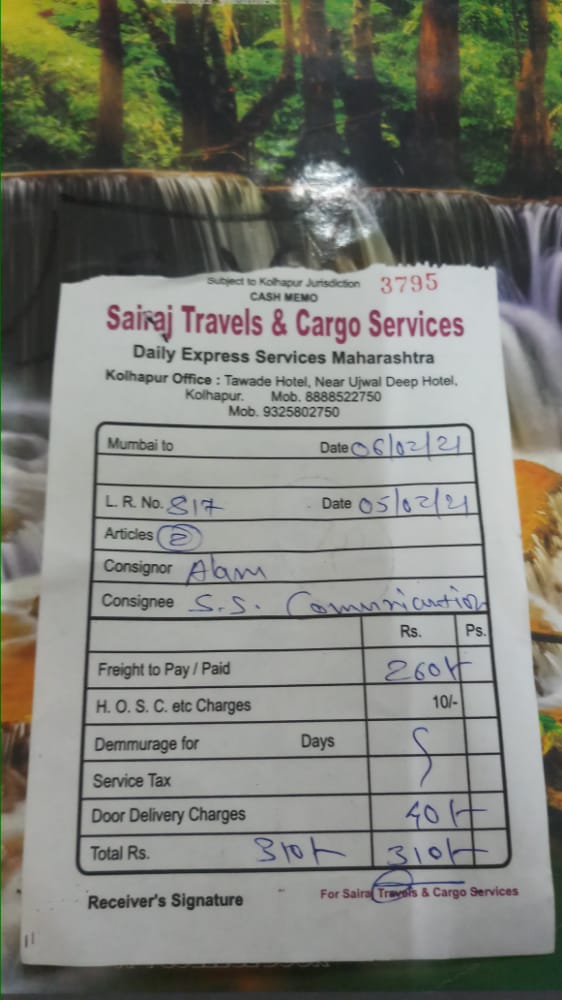 Subject to Kolhapur Jurisdiction 3795
CASH MEMO
Sairaj Travels & Cargo Services
Daily Express Services Maharashtra
Kolhapur Office : Tawade Hotel, Near Ujwal Deep Hotel,
Kolhapur. Mob. 8888522750
Mob. 9325802750
Mumbai to Date 06/02/21
L. R. No. 817 Date 05/02/21
Articles 2
Consignor Alam
Consignee S.S. Comunication
Rs. Ps.
Freight to Pay / Paid 260/-
H. O. S. C. etc Charges 10/-
Demmurage for Days
Service Tax
Door Delivery Charges 40/-
Total Rs. 310/- 310/-
Receiver's Signature For Saira Travels & Cargo Services